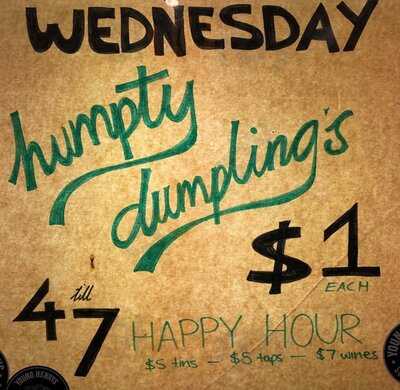 WEDNESDAY
humpty
dumpling's
$1
EACH
4 till 7
HAPPY HOUR
$5 tins — $5 taps — $7 wines
YOUNG HENRYS